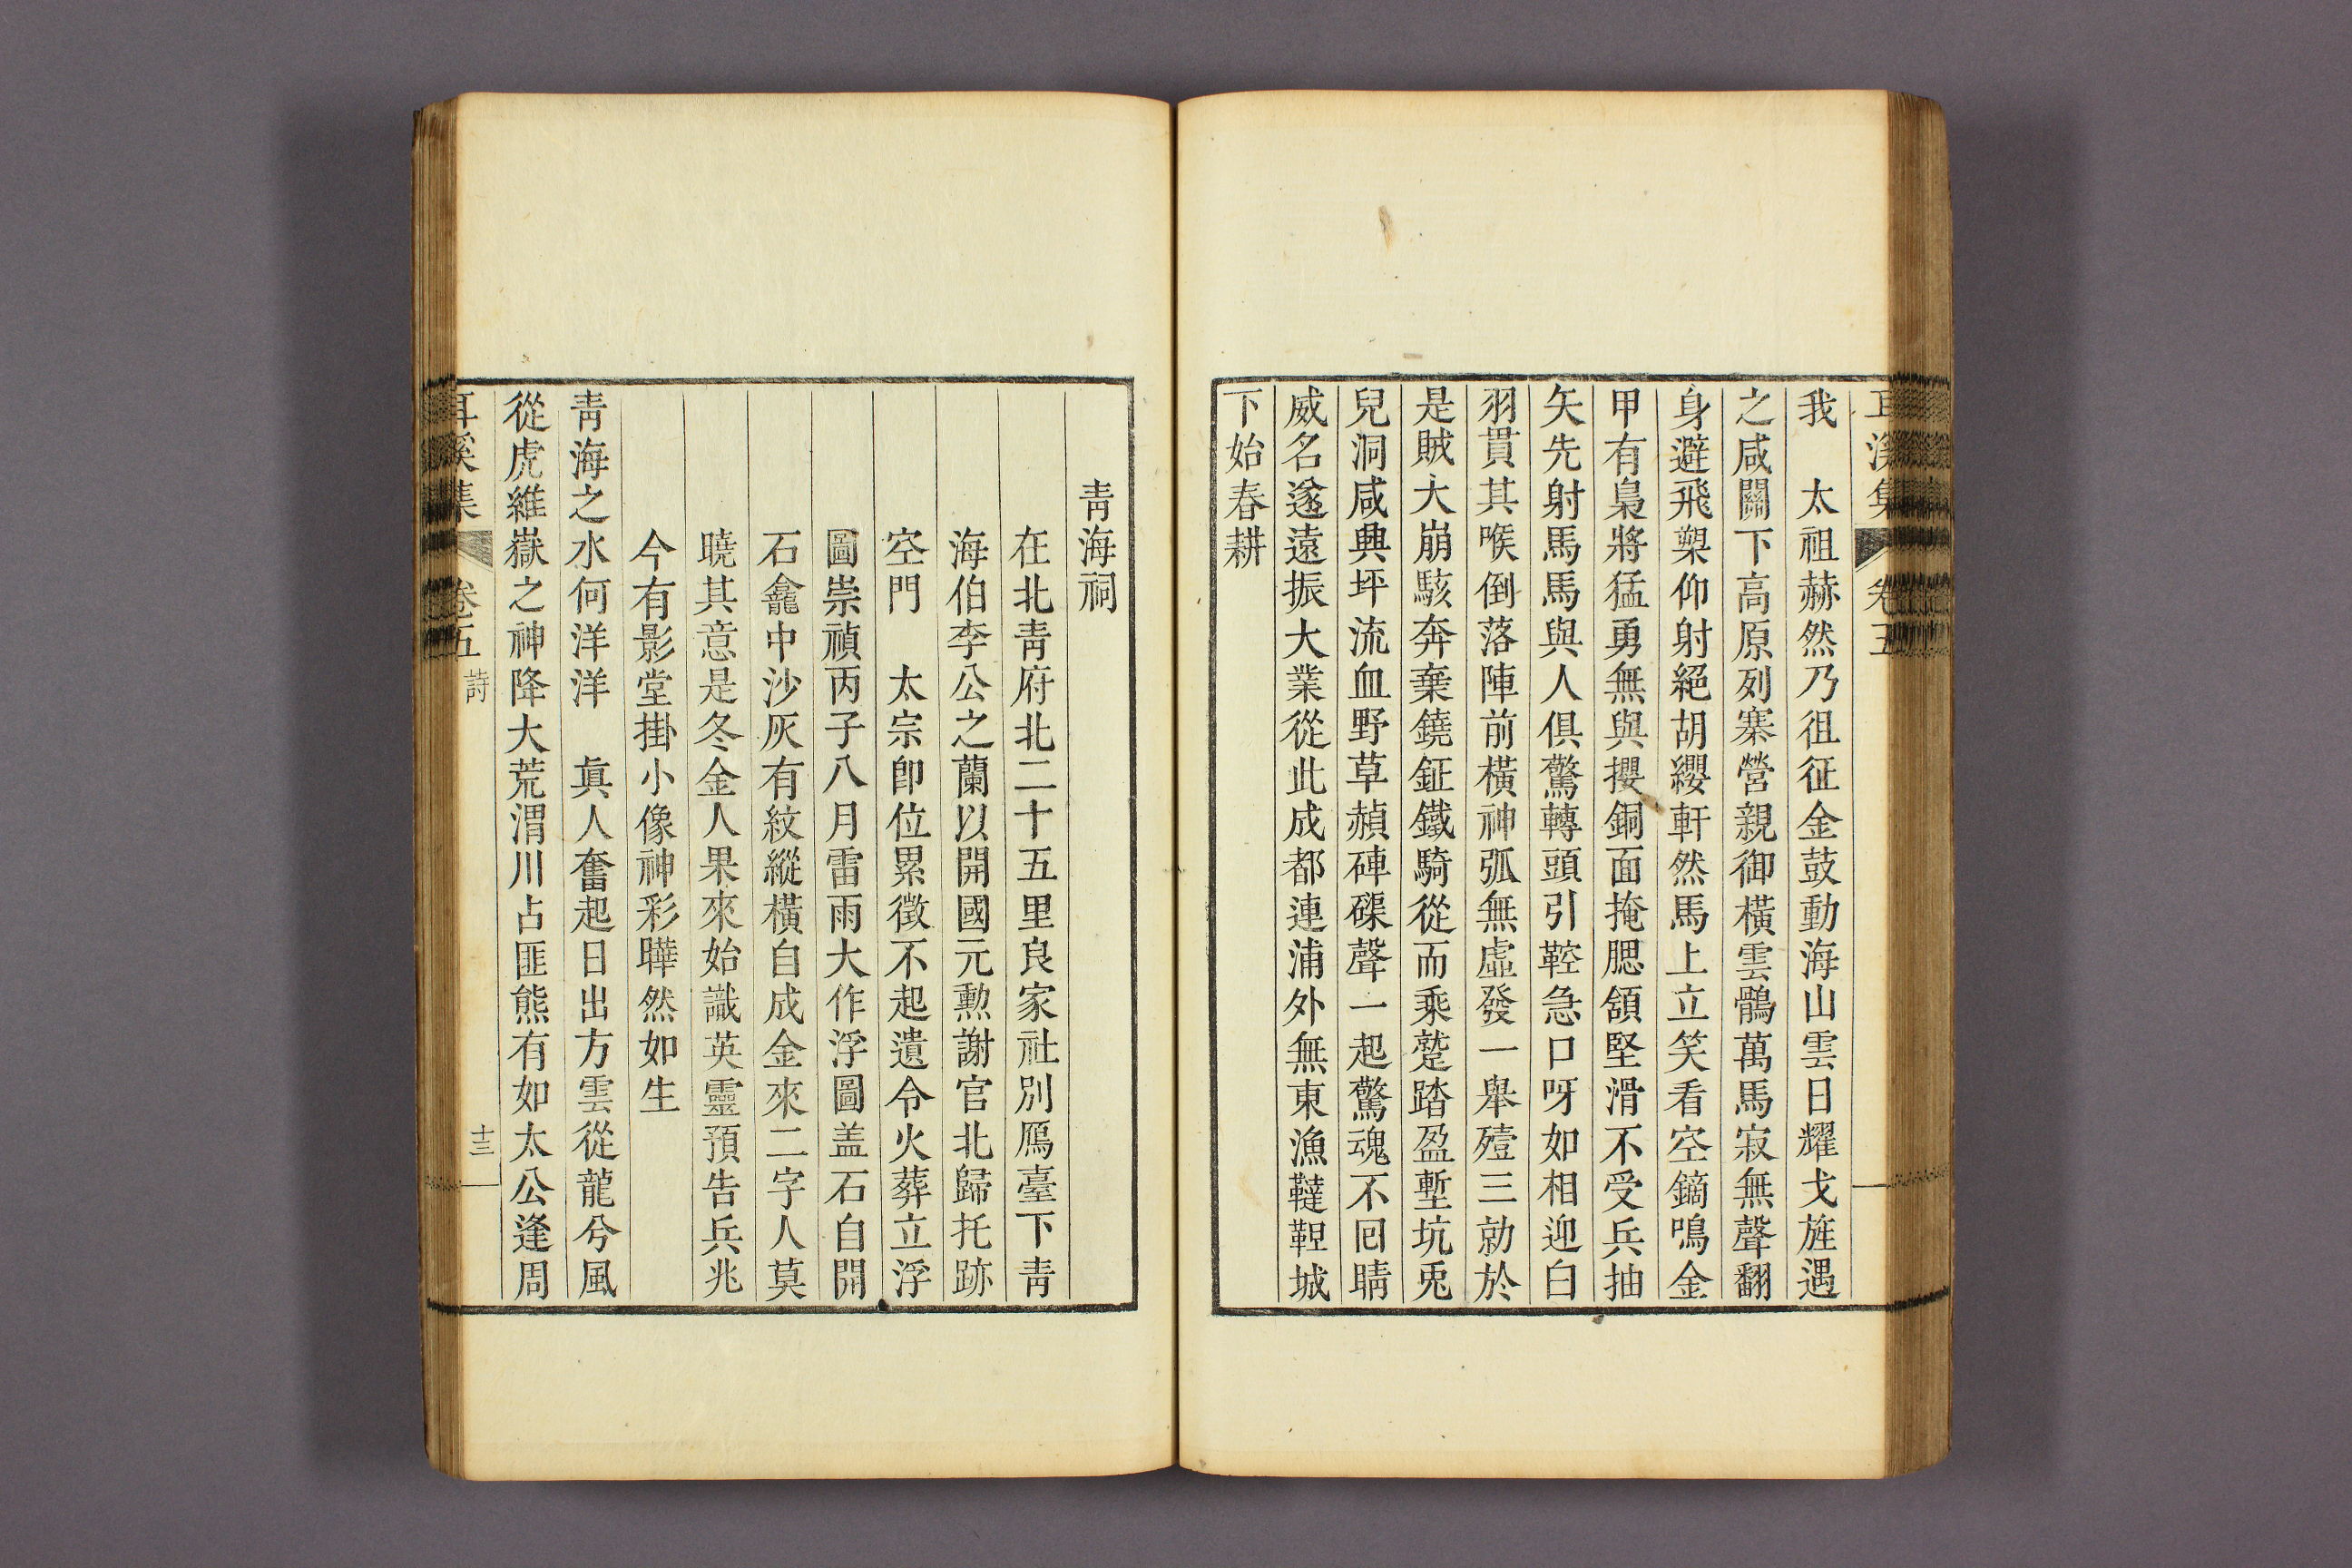 耳溪集 卷五
我 太祖赫然乃徂征金鼓動海山雲日耀戈旌遇
之咸關下高原列寨營親御橫雲鶻萬馬寂無聲翻
身避飛槊仰射絕胡纓軒然馬上立笑看空鏑鳴金
甲有梟將猛勇無與攖銅面掩腮頷堅滑不受兵抽
矢先射馬馬與人俱驚轉頭引鞚急口呀如相迎白
羽貫其喉倒落陣前橫神弧無虛發一舉殪三勍於
是賊大崩駭奔棄鐃鉦鐵騎從而乘蹙踏盈塹坑兎
兒洞咸興坪流血野草赬硨磲聲一起驚魂不回睛
威名遂遠振大業從此成都連浦外無東漁韃靼城
下始春耕
靑海祠
在北靑府北二十五里良家社別鴈臺下靑
海伯李公之蘭以開國元勲謝官北歸托跡
空門 太宗卽位累徵不起遺令火葬立浮
圖崇禎丙子八月雷雨大作浮圖盖石自開
石龕中沙灰有紋縱橫自成金來二字人莫
曉其意是冬金人果來始識英靈預告兵兆
今有影堂掛小像神彩曄然如生
靑海之水何洋洋 眞人奮起日出方雲從龍兮風
從虎維嶽之神降大荒渭川占匪熊有如太公逢周
耳溪集 卷五 詩 十三